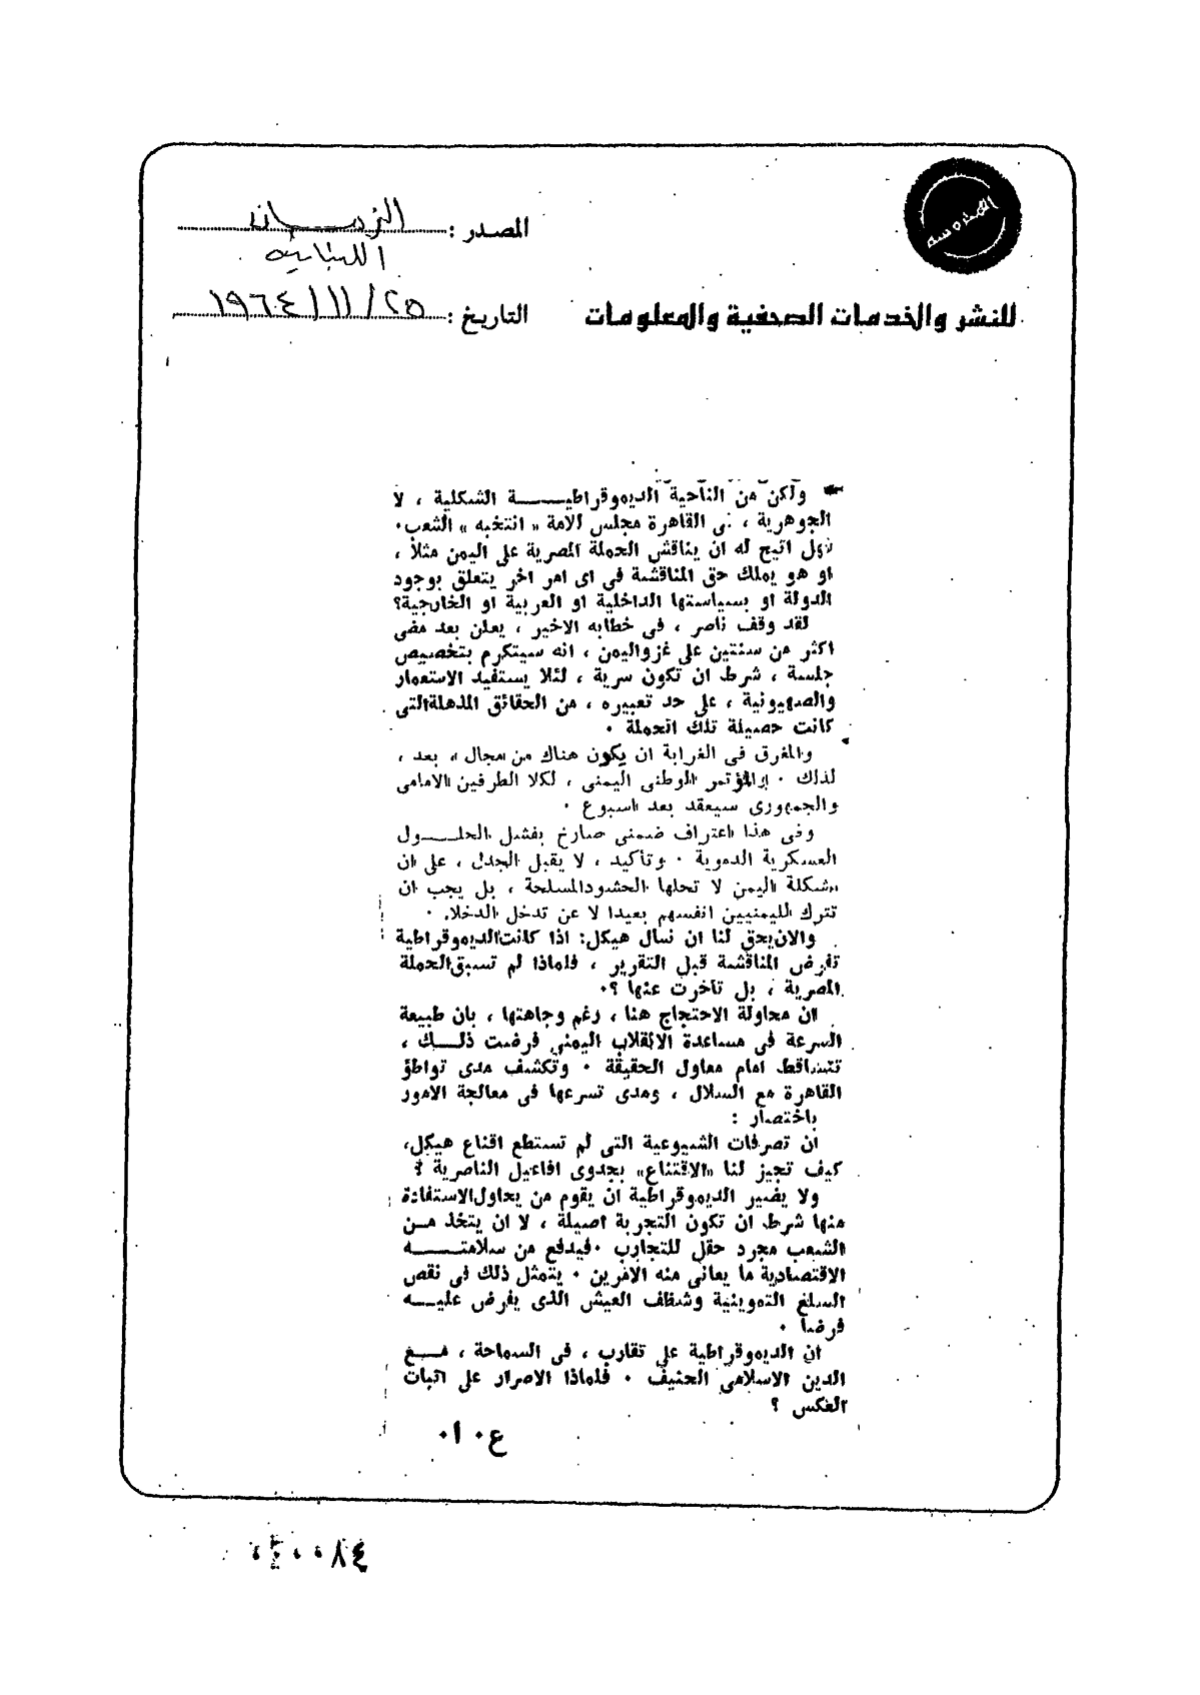 المحروسة
المصدر : الزمان
اللبنانية
للنشر والخدمات الصحفية والمعلومات
التاريخ : ٢٥/١١/١٩٦٤
ولكن من الناحية الديموقراطيـــة الشكلية ، لا
الجوهرية ، فى القاهرة مجلس للامة « انتخبه » الشعب.
فهل اتيح له ان يناقش الحملة المصرية على اليمن مثلا ،
او هو يملك حق المناقشة فى اى امر اخر يتعلق بوجود
الدولة او بسياستها الداخلية او العربية او الخارجية؟
لقد وقف ناصر ، فى خطابه الاخير ، يعلن بعد مضى
اكثر من سنتين على غزواليمن ، انه سيتكرم بتخصيص
جلسة ، شرط ان تكون سرية ، لئلا يستفيد الاستعمار
والصهيونية ، على حد تعبيره ، من الحقائق المذهلةالتى
كانت حصيلة تلك الحملة .
والمغرق فى الغرابة ان يكون هناك من مجال ، بعد ،
لذلك . فالمؤتمر الوطنى اليمنى ، لكلا الطرفين الامامى
والجمهورى سيعقد بعد اسبوع .
وفى هذا اعتراف ضمنى صارخ بفشل الحلـــول
العسكرية الدموية . وتأكيد ، لا يقبل الجدل ، على ان
مشكلة اليمن لا تحلها الحشودالمسلحة ، بل يجب ان
تترك لليمنيين انفسهم بعيدا لا عن تدخل الدخلاء .
والان يحق لنا ان نسال هيكل: اذا كانت الديموقراطية
تفرض المناقشة قبل التقرير ، فلماذا لم تسبق الحملة
المصرية ، بل تأخرت عنها ؟.
ان محاولة الاحتجاج هنا ، رغم وجاهتها ، بان طبيعة
السرعة فى مساعدة الانقلاب اليمنى فرضت ذلـــك ،
تتساقط امام معاول الحقيقة . وتكشف مدى تواطؤ
القاهرة مع السلال ، ومدى تسرعها فى معالجة الامور
باختصار :
ان تصرفات الشيوعية التى لم تستطع اقناع هيكل،
كيف تجيز لنا «الاقتناع» بجدوى افاعيل الناصرية ؟
ولا يضير الديموقراطية ان يقوم من يحاول الاستفادة
منها شرط ان تكون التجربة اصيلة ، لا ان يتخذ مـن
الشعب مجرد حقل للتجارب .فيدفع من سلامتـــه
الاقتصادية ما يعانى منه الامرين . يتمثل ذلك فى نقص
السلع التموينية وشظف العيش الذى يفرض عليـــه
فرضا .
ان الديموقراطية على تقارب ، فى السماحة ، مـــع
الدين الاسلامى الحنيف . فلماذا الاصرار على اثبات
العكس ؟
ع.ا.